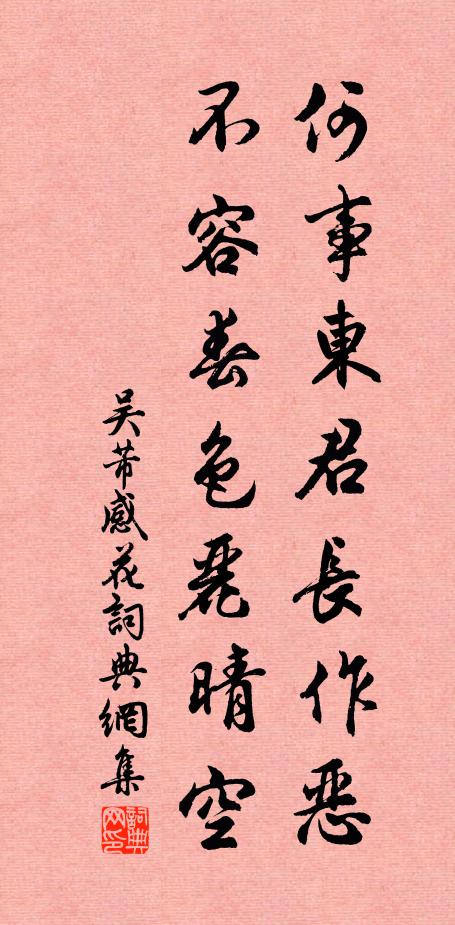 何事東君長作恶
不容春色麗晴空
吴芾感花詞典網集
詞典网印